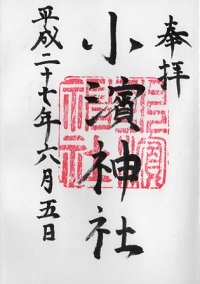 奉拝
小濱神社
平成二十七年六月五日